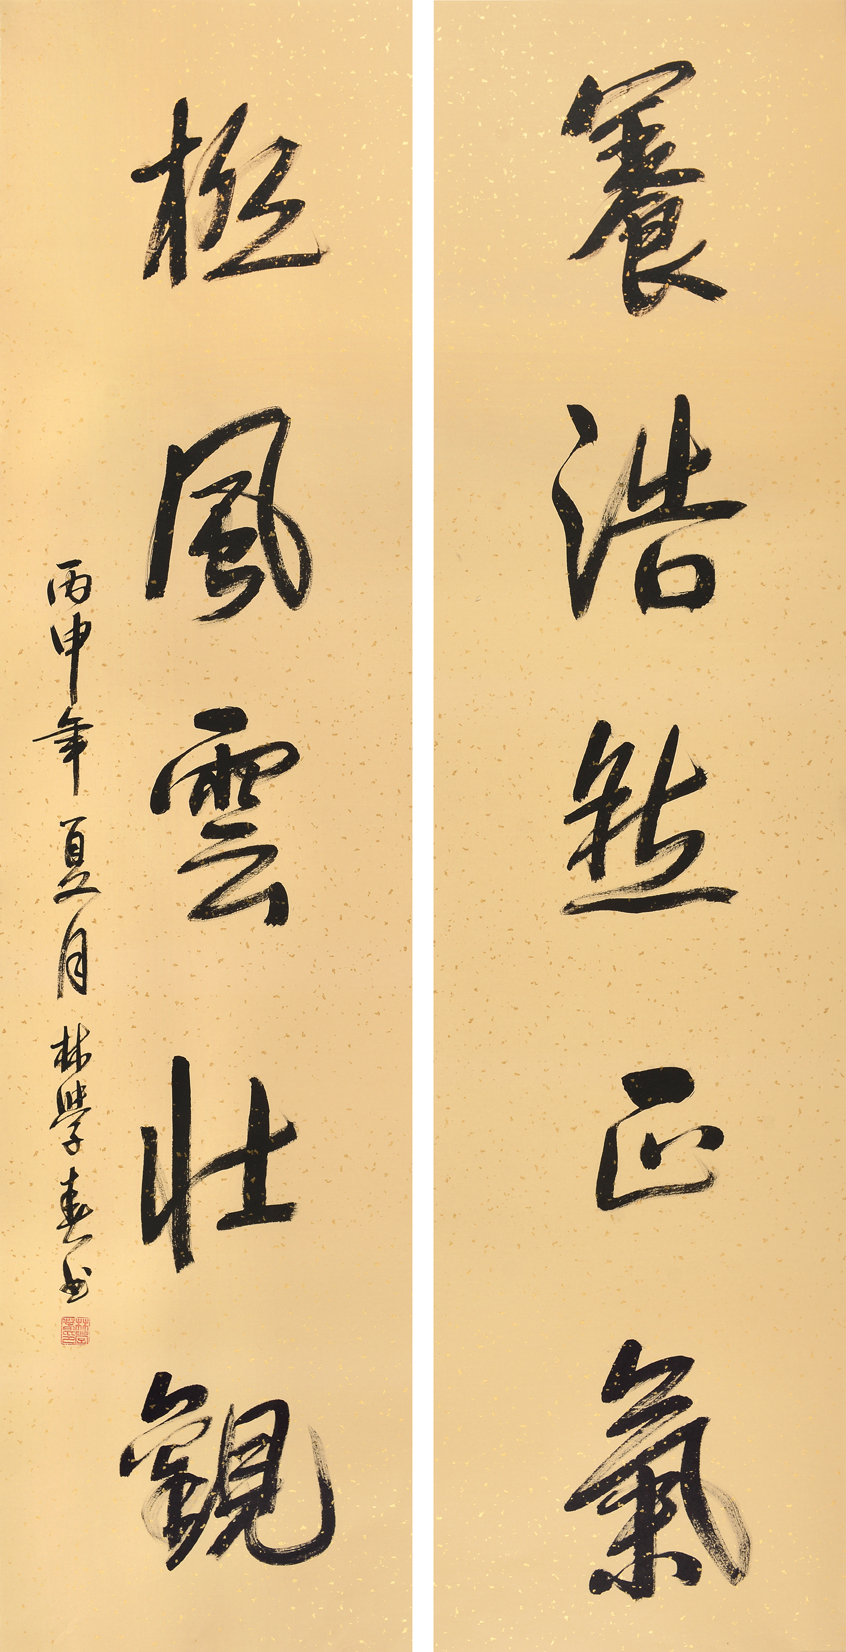 養浩然正氣
極風雲壯觀
丙申年夏月林學春书